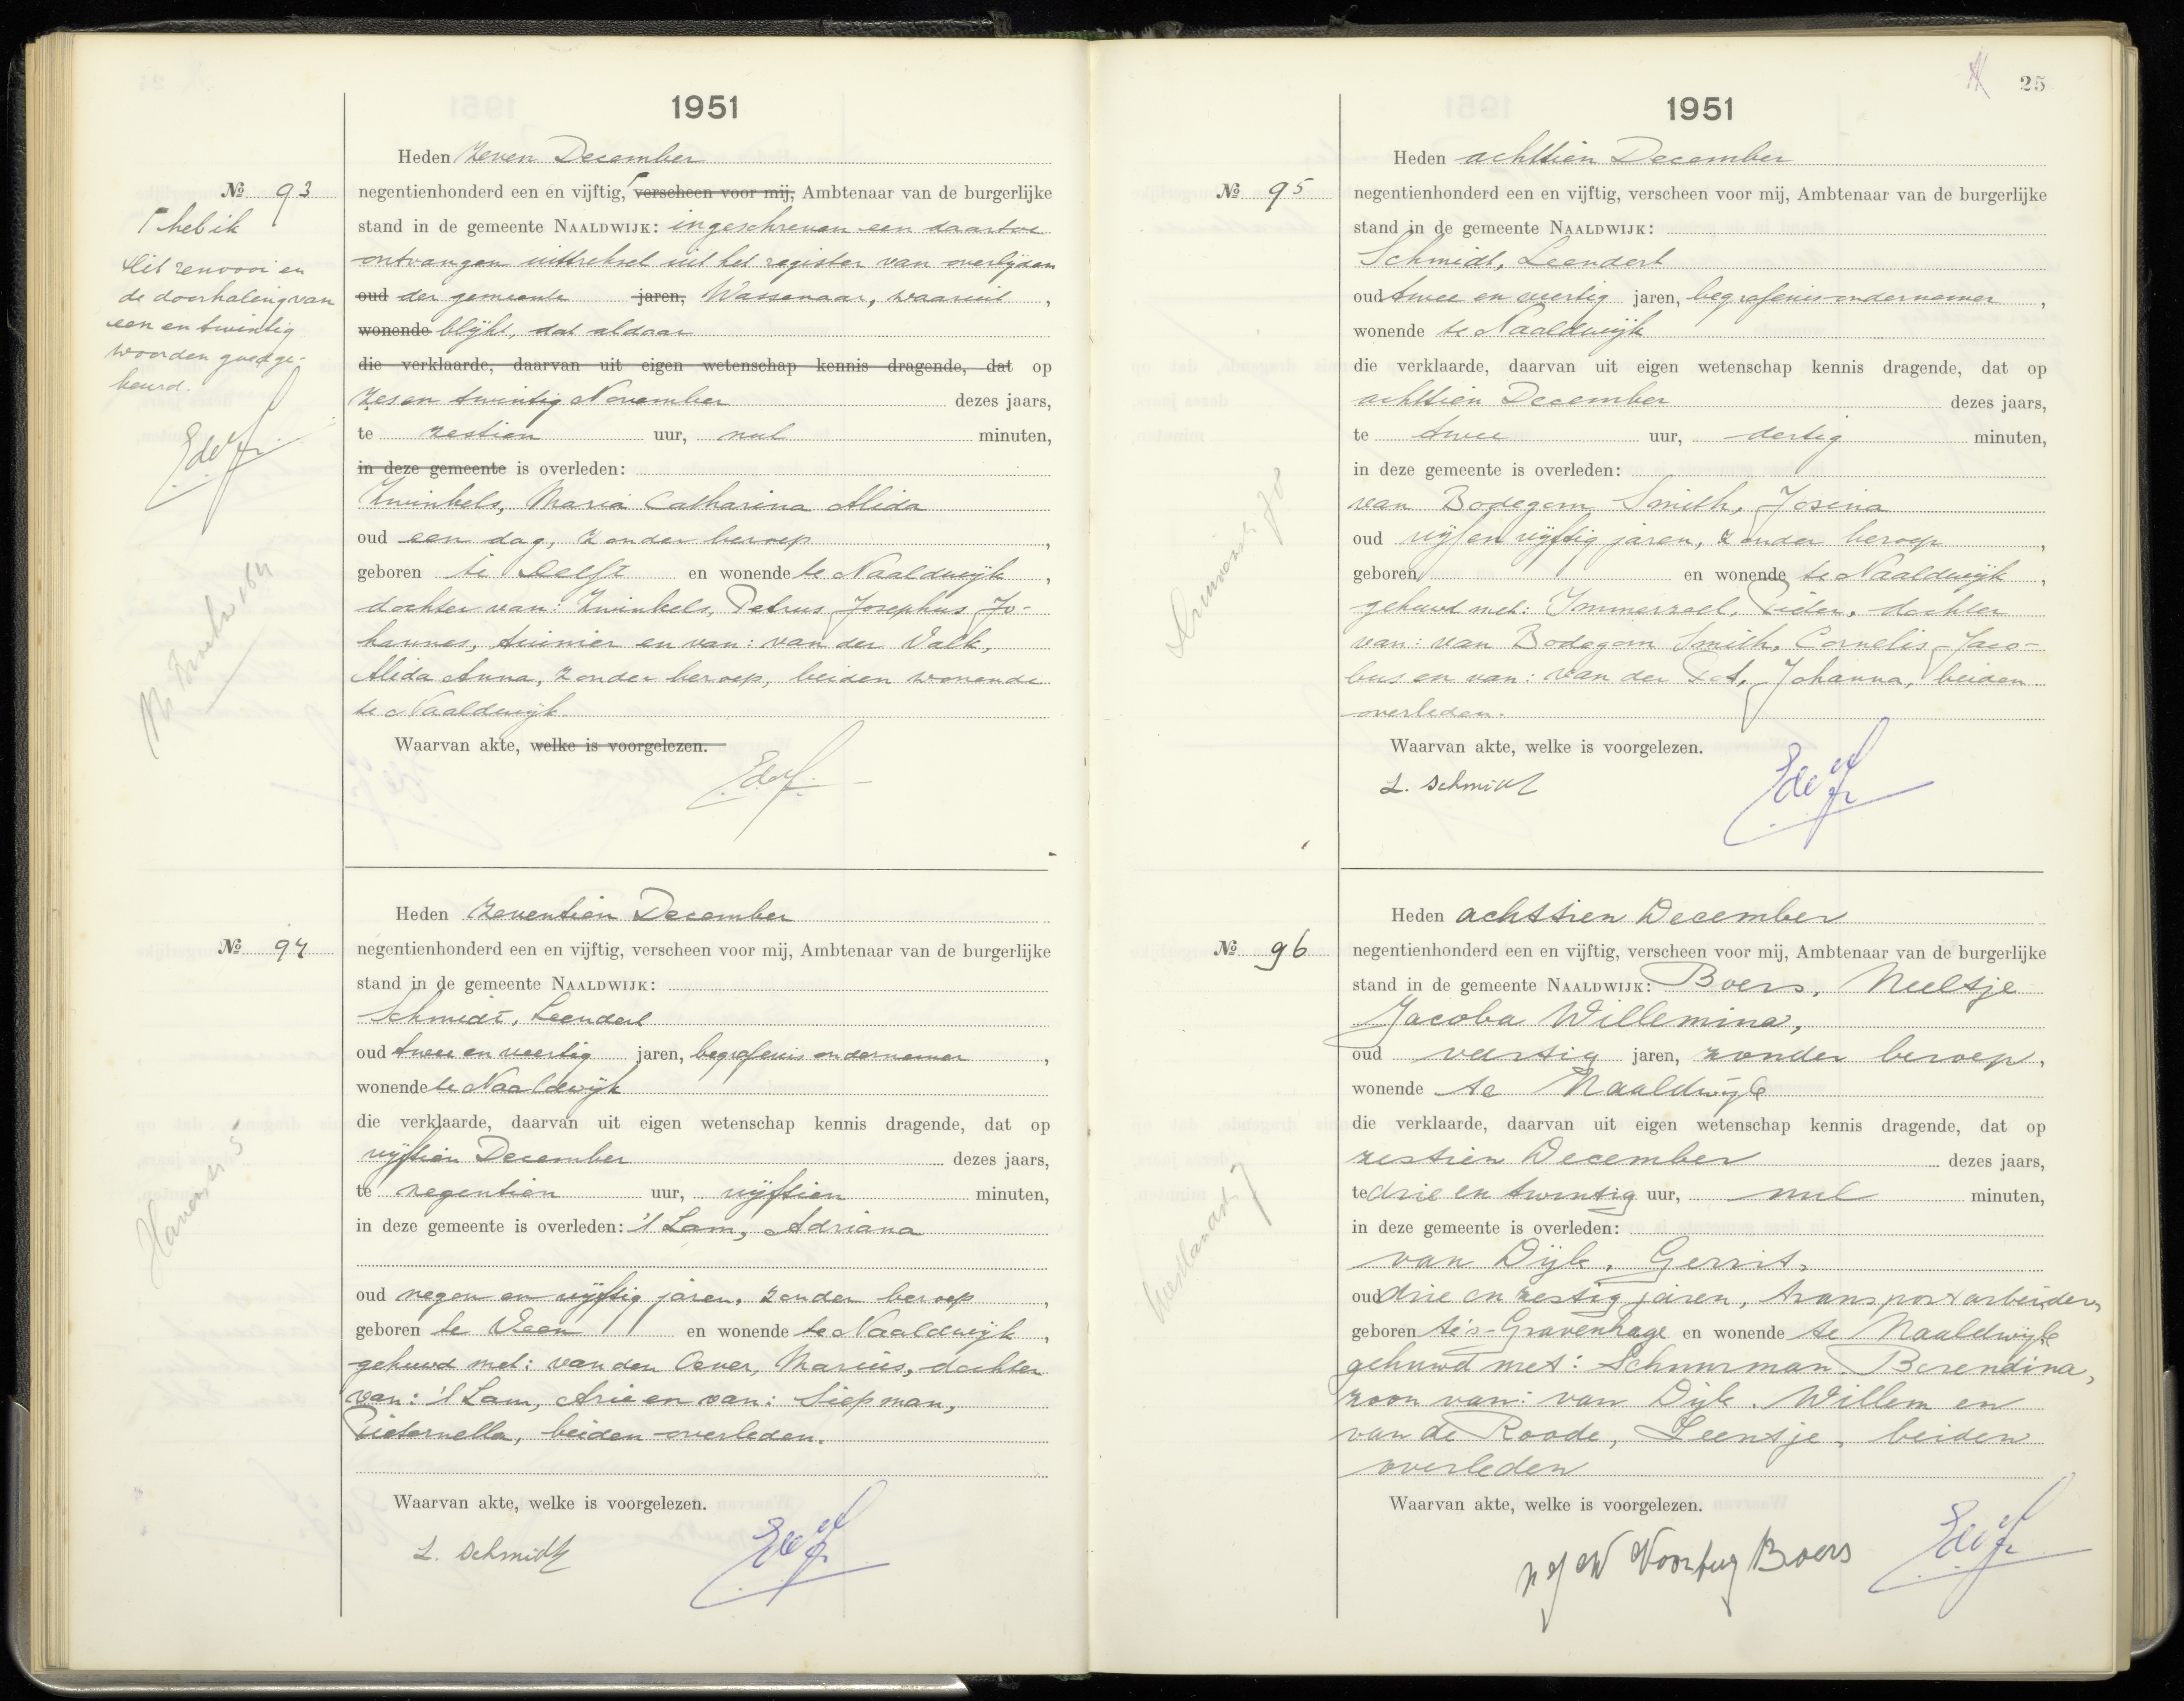 1951
Heden Zeven December
№ 93
negentienhonderd een en vijftig, ⌈ verscheen voor mij, Ambtenaar van de burgerlijke
stand in de gemeente NAALDWIJK: ingeschreven een daartoe
ontvangen uittreksel uit het register van overlijden
oud der gemeente jaren, Wassenaar, waaruit ,
wonende blijkt, dat aldaar
die verklaarde, daarvan uit eigen wetenschap kennis dragende, dat op
zesen twintig November dezes jaars,
te zestien uur, nul minuten,
in deze gemeente is overleden:
Zwinkels, Maria Catharina Alida
oud een dag, zonder beroep ,
geboren te Delft en wonende te Naaldwijk ,
dochter van: Zwinkels, Petrus Josephus Jo-
hannes, tuinier en van: van der Valk,
Alida Anna, zonder beroep, beiden wonende
te Naaldwijk
Waarvan akte, welke is voorgelezen.
⌈ heb ik
dit renvooi en
de doorhaling van
een en twintig
woorden goedge-
keurd.
Heden zeventien December
№ 94
negentienhonderd een en vijftig, verscheen voor mij, Ambtenaar van de burgerlijke
stand in de gemeente NAALDWIJK:
Schmidt, Leendert
oud twee en veertig jaren, begrafenisondernemer ,
wonende te Naaldwijk
die verklaarde, daarvan uit eigen wetenschap kennis dragende, dat op
vijftien December dezes jaars,
te negentien uur, vijftien minuten,
in deze gemeente is overleden: 't Lam, Adriana
oud negen en vijftig jaren, zonder beroep ,
geboren te Veen en wonende te Naaldwijk ,
gehuwd met: van den Oever, Marius, dochter
van: 't Lam, Arie en van: Siepman,
Pieternella, beiden overleden.
Waarvan akte, welke is voorgelezen.
L. Schmidt
25
1951
Heden achttien December
№ 95
negentienhonderd een en vijftig, verscheen voor mij, Ambtenaar van de burgerlijke
stand in de gemeente NAALDWIJK:
Schmidt, Leendert
oud twee en veertig jaren, begrafenisondernemer ,
wonende te Naaldwijk
die verklaarde, daarvan uit eigen wetenschap kennis dragende, dat op
achttien December dezes jaars,
te twee uur, dertig minuten,
in deze gemeente is overleden:
van Bodegom Smith, Josina
oud vijf en vijftig jaren, zonder beroep ,
geboren en wonende te Naaldwijk ,
gehuwd met: Immerzeel, Pieter, dochter
van: van Bodegom Smith, Cornelis Jaco-
bus en van: van der Pot, Johanna, beiden
overleden.
Waarvan akte, welke is voorgelezen.
L. Schmidt
Heden achttien December
№ 96
negentienhonderd een en vijftig, verscheen voor mij, Ambtenaar van de burgerlijke
stand in de gemeente NAALDWIJK: Boers, Neeltje
Jacoba Willemina,
oud veertig jaren, zonder beroep,
wonende te Naaldwijk
die verklaarde, daarvan uit eigen wetenschap kennis dragende, dat op
zestien December dezes jaars,
te drie en twintig uur, nul minuten,
in deze gemeente is overleden:
van Dijk, Gerrit,
oud drie en zestig jaren, transportarbeider,
geboren te 's-Gravenhage en wonende te Naaldwijk
gehuwd met: Schuurman Berendina,
zoon van: van Dijk, Willem en
van de Roode, Leentje, beiden
overleden
Waarvan akte, welke is voorgelezen.